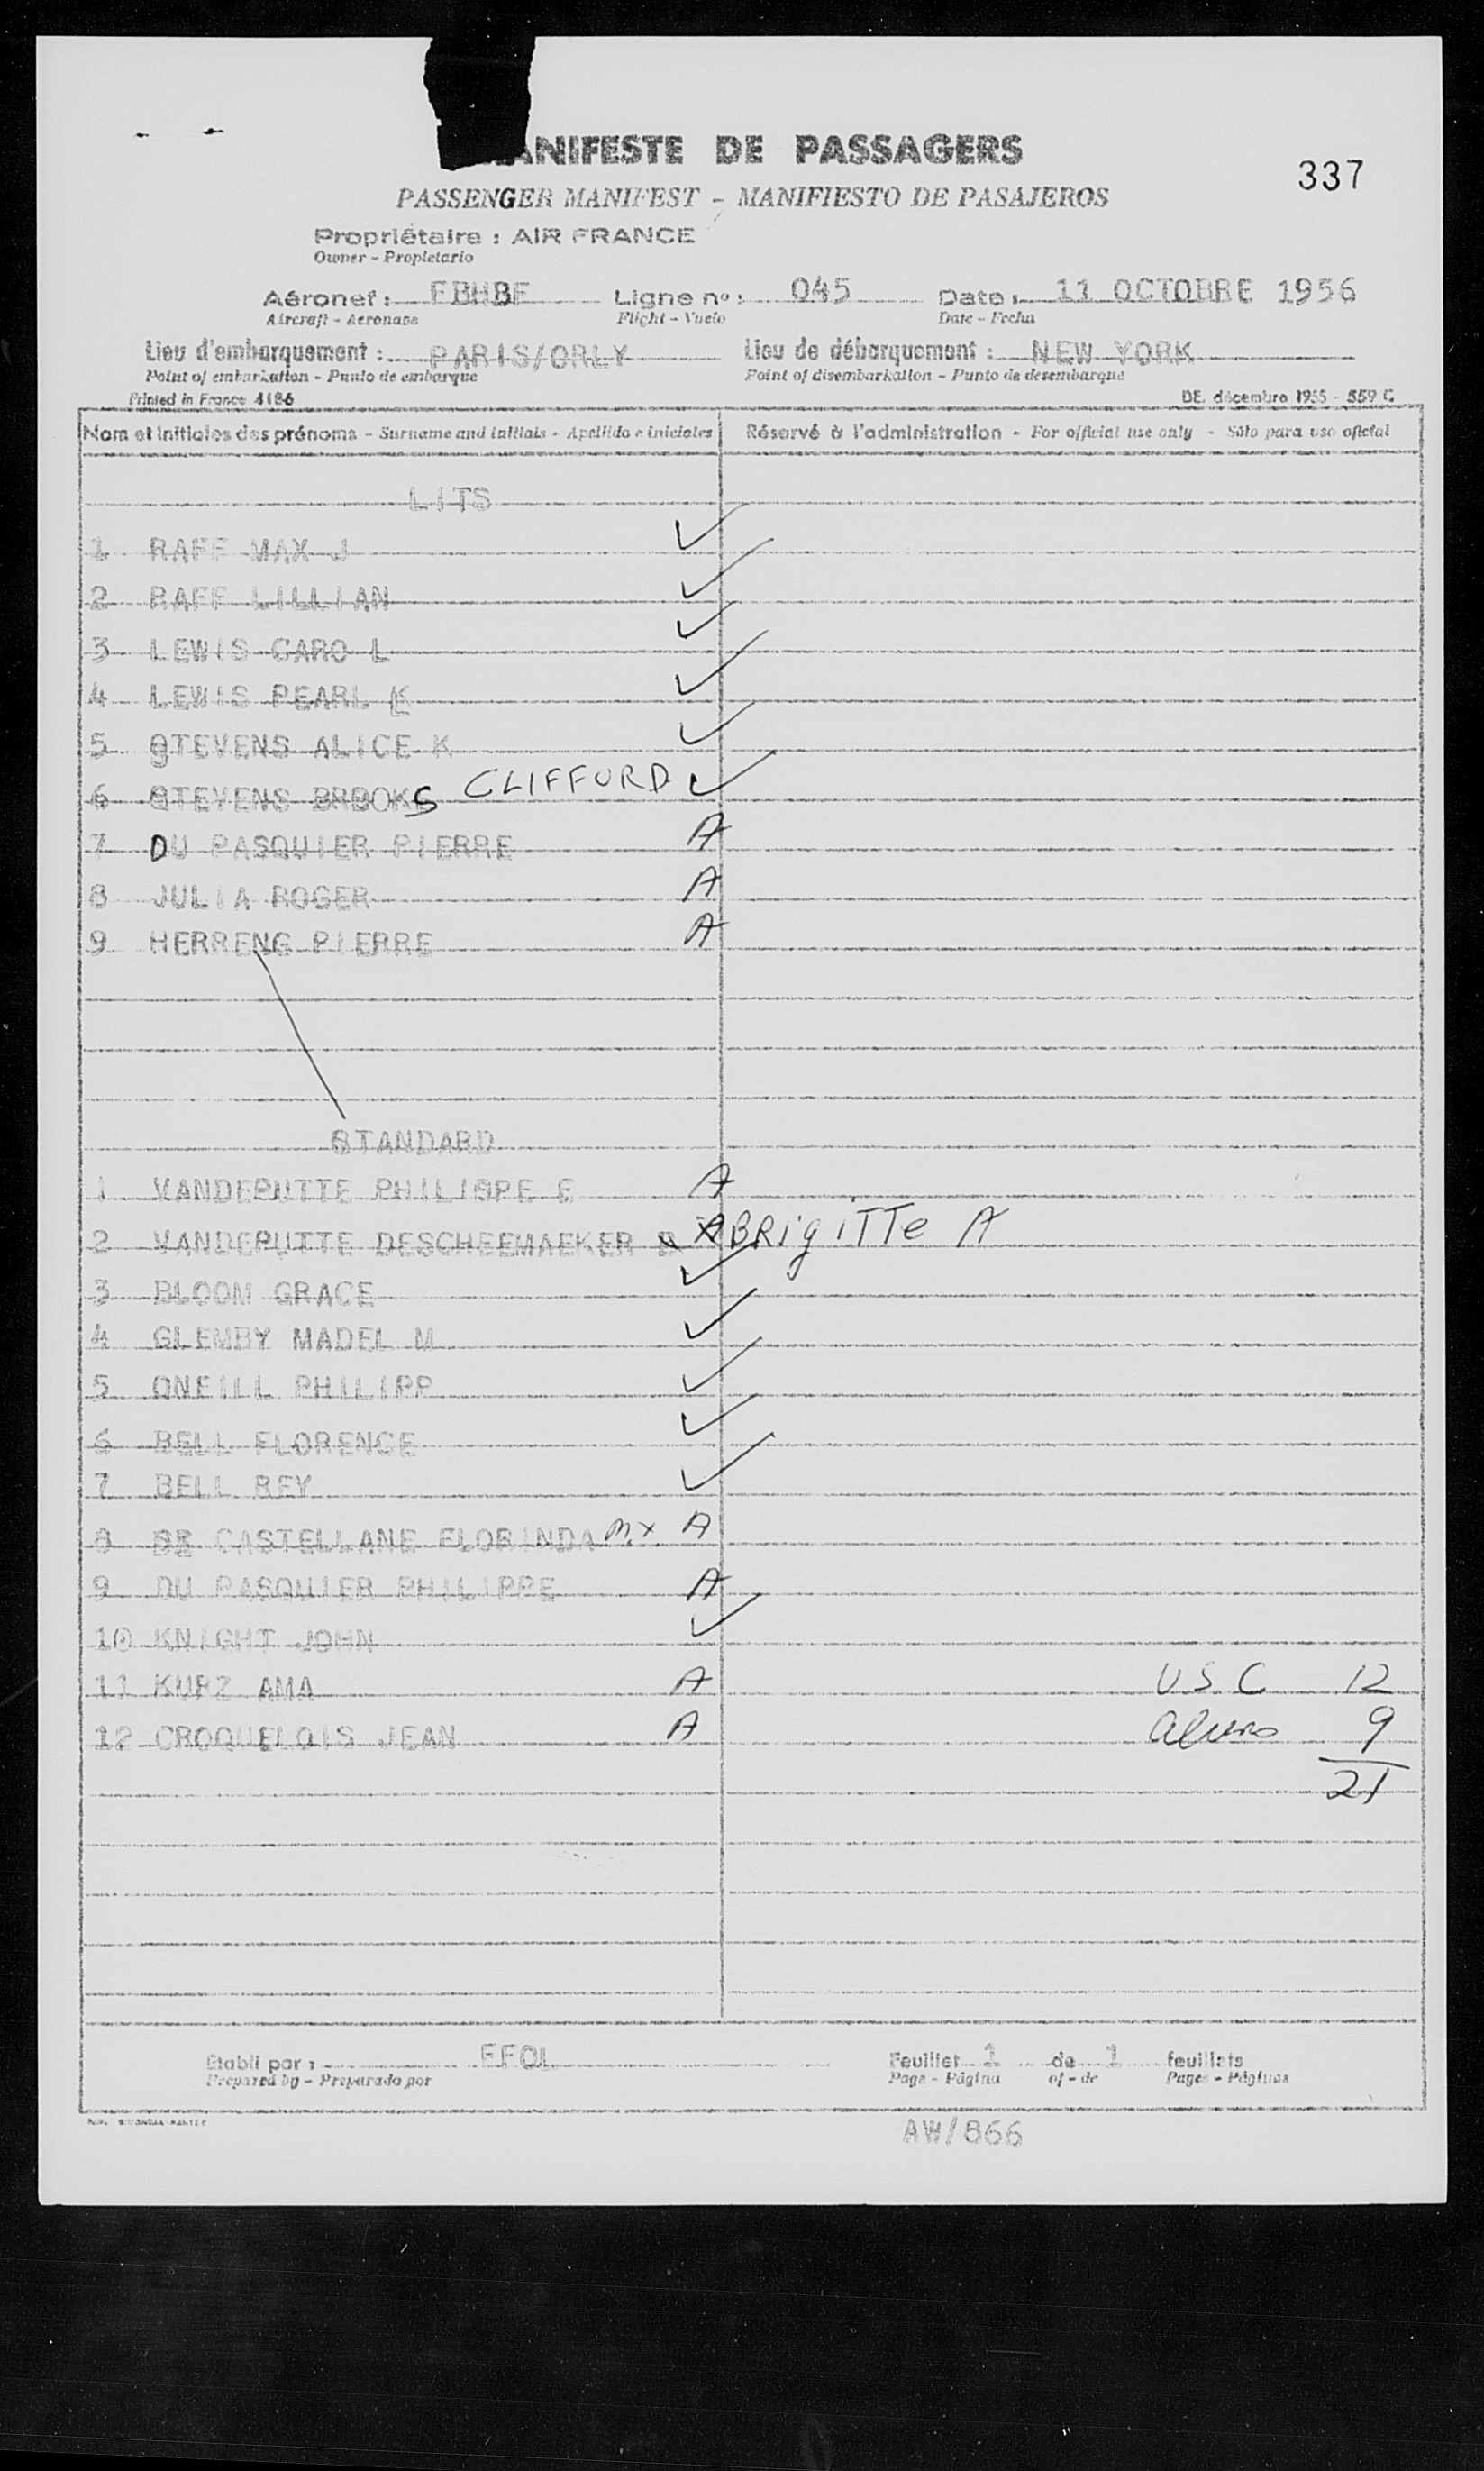 ANIFESTE DE PASSAGERS
337
PASSENGER MANIFEST - MANIFIESTO DE PASAJEROS
Propriétaire : AIR FRANCE
Owner - Propietario
Aéronef : FBHBF Ligne nº : 045 Date : 11 OCTOBRE 1956
Aircraft - Aeronave Flight - Vuelo Date - Fecha
Lieu d'embarquement : PARIS/ORLY Lieu de débarquement : NEW YORK
Point of embarkation - Punto de embarque Point of disembarkation - Punto de desembarque
Printed in France 4186 DE. décembre 1955 - 559 C
Nom et initiales des prénoms - Surname and initials - Apellido e iniciales Réservé à l'administration - For official use only - Sólo para uso oficial
LITS
1 RAFF MAX J ✓
2 RAFF LILLIAN ✓
3 LEWIS CARO L ✓
4 LEWIS PEARL K ✓
5 STEVENS ALICE K ✓
6 STEVENS BROOKS CLIFFORD ✓
7 DU PASQUIER PIERRE A
8 JULIA ROGER A
9 HERRENG PIERRE A
STANDARD
1 VANDEPUTTE PHILIPPE E A
2 VANDEPUTTE DESCHEEMAEKER B BRigiTTe A
3 BLOOM GRACE ✓
4 GLEMBY MADEL M ✓
5 ONEILL PHILIPP ✓
6 BELL FLORENCE ✓
7 BELL REY ✓
8 DE CASTELLANE FLORINDA A
9 DU PASQUIER PHILIPPE A
10 KNIGHT JOHN ✓
11 KURZ AMA A USC 12
12 CROQUELOIS JEAN A aliens 9
21
Etabli par : FFOL Feuillet 1 de 1 feuillets
Prepared by - Preparado por Page - Página of - de Pages - Páginas
AW/866